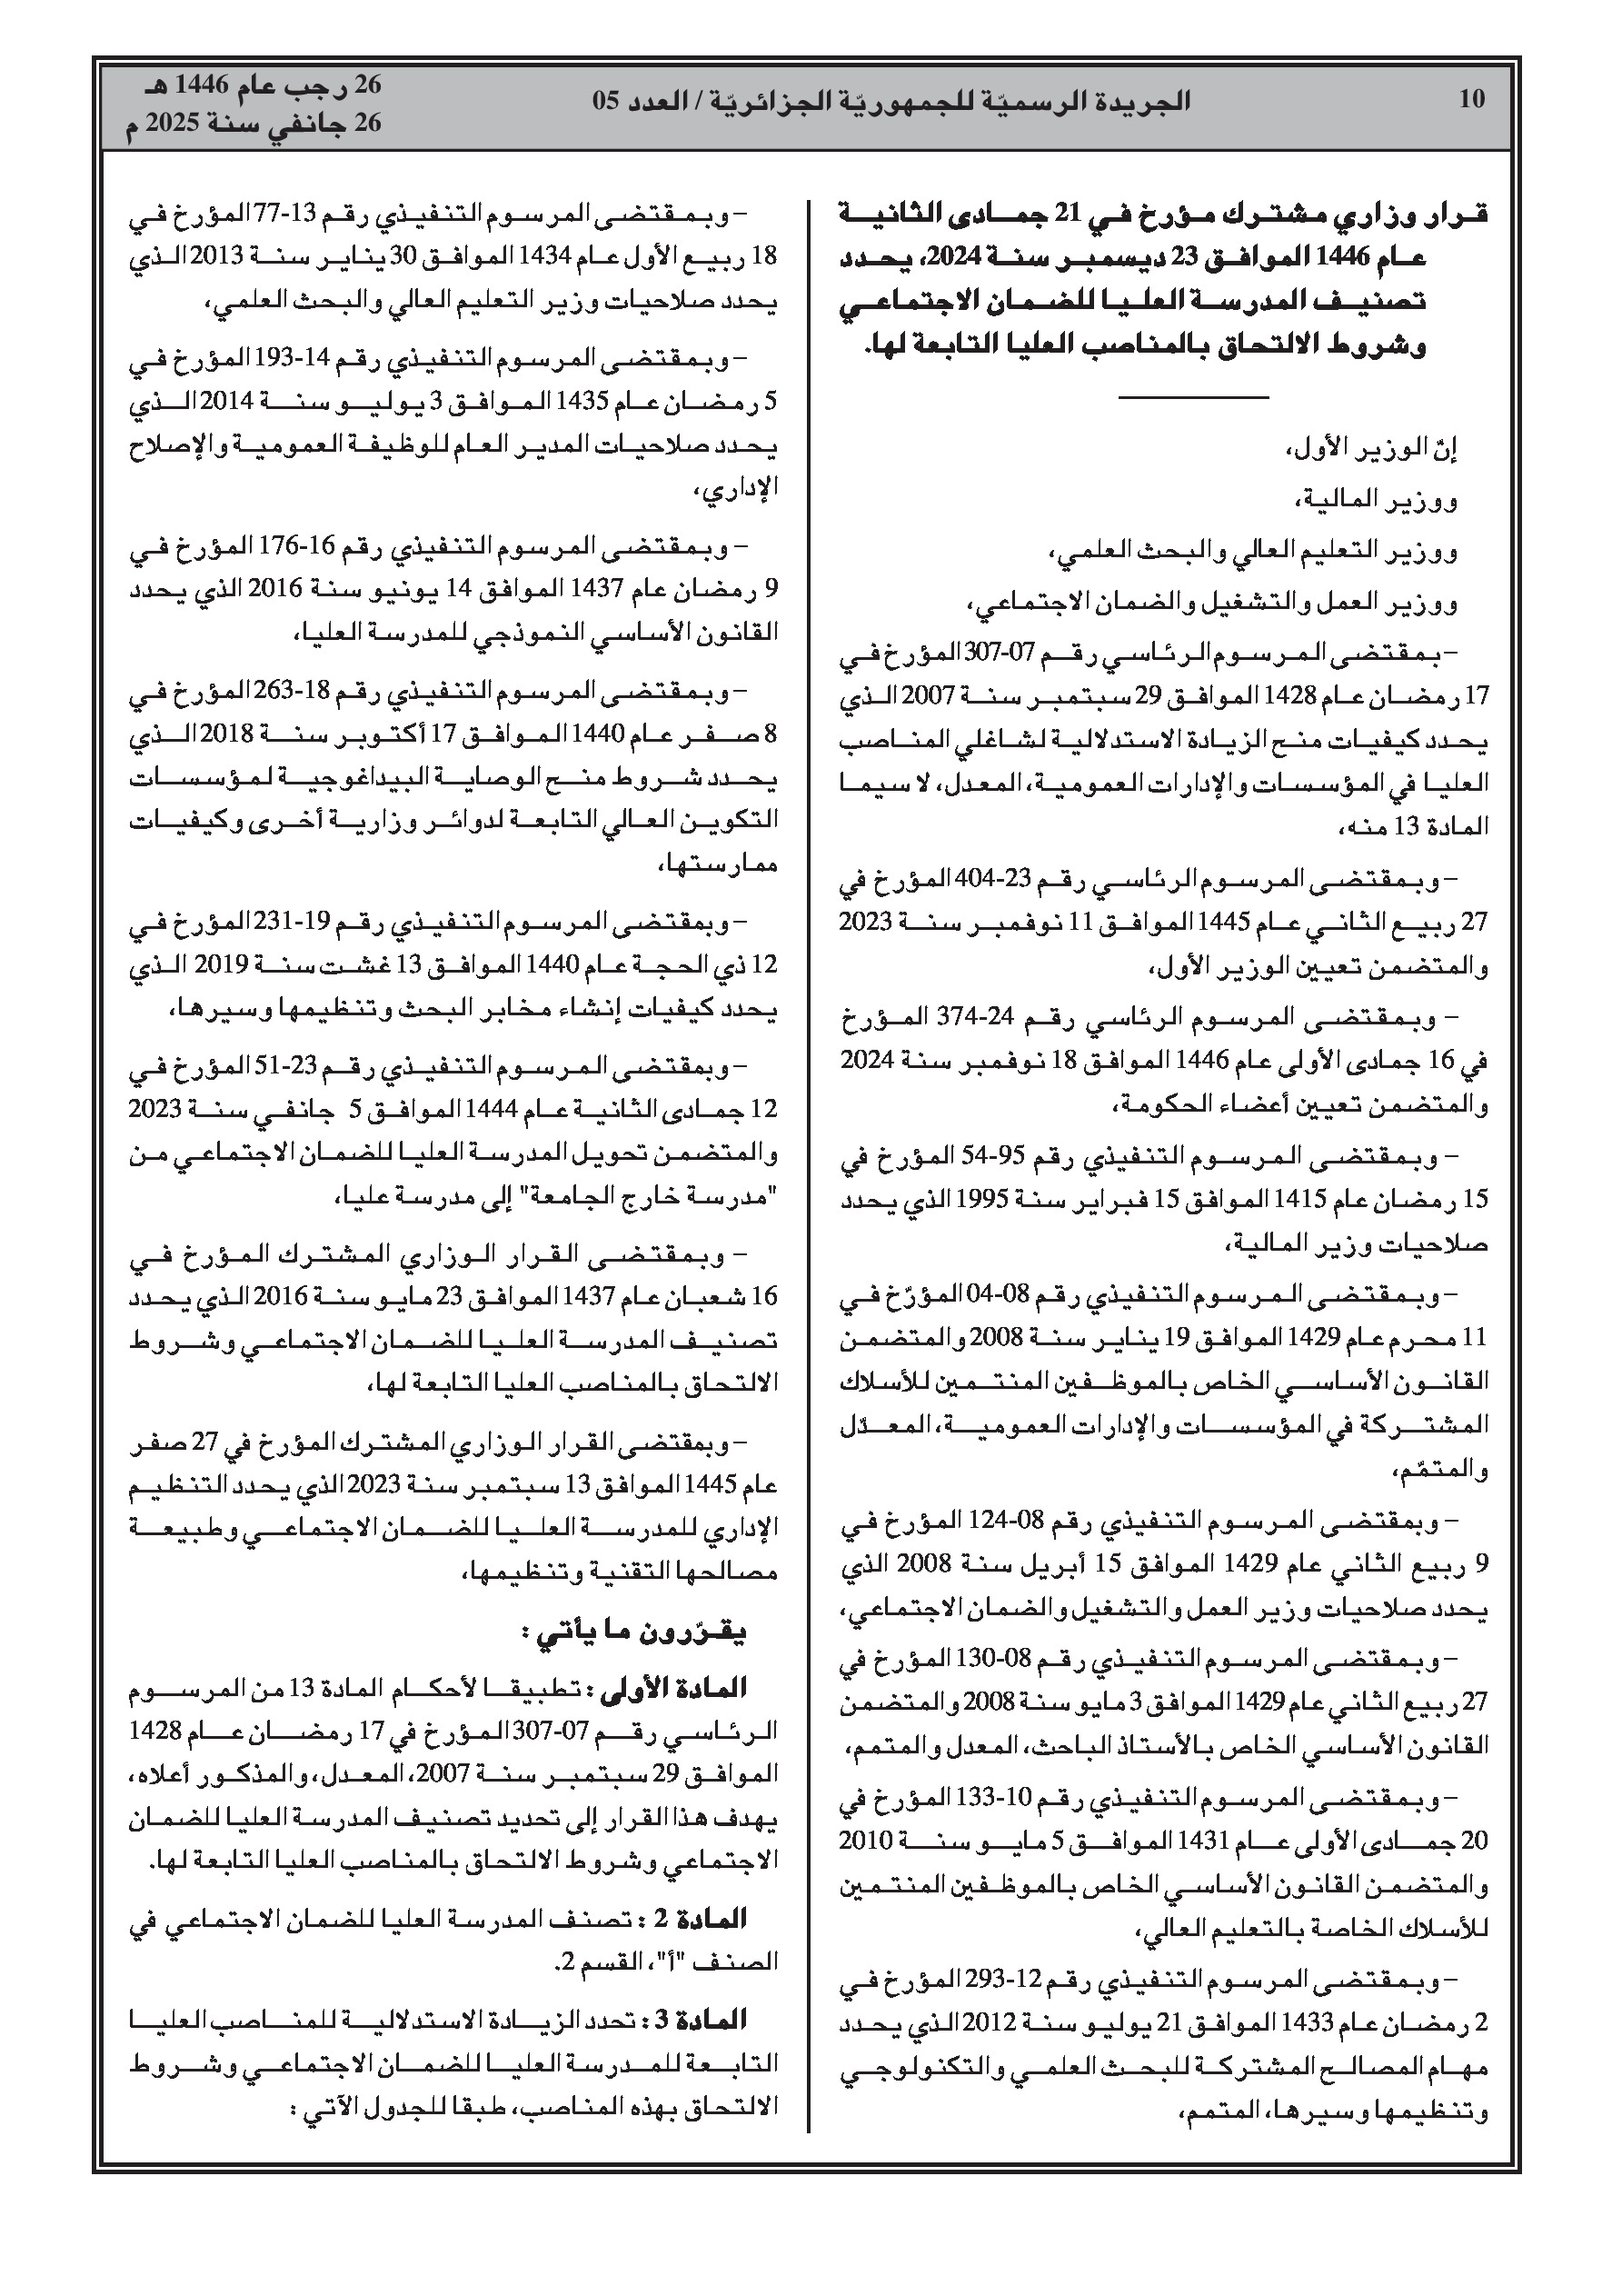 10
الجريدة الرسميّة للجمهوريّة الجزائريّة / العدد 05
26 رجب عام 1446 هـ
26 جانفي سنة 2025 م
قرار وزاري مشترك مؤرخ في 21 جمادى الثانية
عام 1446 الموافق 23 ديسمبر سنة 2024، يحدد
تصنيف المدرسة العليا للضمان الاجتماعي
وشروط الالتحاق بالمناصب العليا التابعة لها.
إنّ الوزير الأول،
ووزير المالية،
ووزير التعليم العالي والبحث العلمي،
ووزير العمل والتشغيل والضمان الاجتماعي،
– بمقتضى المرسوم الرئاسي رقم 07-307 المؤرخ في
17 رمضان عام 1428 الموافق 29 سبتمبر سنة 2007 الذي
يحدد كيفيات منح الزيادة الاستدلالية لشاغلي المناصب
العليا في المؤسسات والإدارات العمومية، المعدل، لا سيما
المادة 13 منه،
– وبمقتضى المرسوم الرئاسي رقم 23-404 المؤرخ في
27 ربيع الثاني عام 1445 الموافق 11 نوفمبر سنة 2023
والمتضمن تعيين الوزير الأول،
– وبمقتضى المرسوم الرئاسي رقم 24-374 المؤرخ
في 16 جمادى الأولى عام 1446 الموافق 18 نوفمبر سنة 2024
والمتضمن تعيين أعضاء الحكومة،
– وبمقتضى المرسوم التنفيذي رقم 95-54 المؤرخ في
15 رمضان عام 1415 الموافق 15 فبراير سنة 1995 الذي يحدد
صلاحيات وزير المالية،
– وبمقتضى المرسوم التنفيذي رقم 08-04 المؤرّخ في
11 محرم عام 1429 الموافق 19 يناير سنة 2008 والمتضمن
القانون الأساسي الخاص بالموظفين المنتمين للأسلاك
المشتركة في المؤسسات والإدارات العمومية، المعدّل
والمتمّم،
– وبمقتضى المرسوم التنفيذي رقم 08-124 المؤرخ في
9 ربيع الثاني عام 1429 الموافق 15 أبريل سنة 2008 الذي
يحدد صلاحيات وزير العمل والتشغيل والضمان الاجتماعي،
– وبمقتضى المرسوم التنفيذي رقم 08-130 المؤرخ في
27 ربيع الثاني عام 1429 الموافق 3 مايو سنة 2008 والمتضمن
القانون الأساسي الخاص بالأستاذ الباحث، المعدل والمتمم،
– وبمقتضى المرسوم التنفيذي رقم 10-133 المؤرخ في
20 جمادى الأولى عام 1431 الموافق 5 مايو سنة 2010
والمتضمن القانون الأساسي الخاص بالموظفين المنتمين
للأسلاك الخاصة بالتعليم العالي،
– وبمقتضى المرسوم التنفيذي رقم 12-293 المؤرخ في
2 رمضان عام 1433 الموافق 21 يوليو سنة 2012 الذي يحدد
مهام المصالح المشتركة للبحث العلمي والتكنولوجي
وتنظيمها وسيرها، المتمم،
– وبمقتضى المرسوم التنفيذي رقم 13-77 المؤرخ في
18 ربيع الأول عام 1434 الموافق 30 يناير سنة 2013 الذي
يحدد صلاحيات وزير التعليم العالي والبحث العلمي،
– وبمقتضى المرسوم التنفيذي رقم 14-193 المؤرخ في
5 رمضان عام 1435 الموافق 3 يوليو سنة 2014 الذي
يحدد صلاحيات المدير العام للوظيفة العمومية والإصلاح
الإداري،
– وبمقتضى المرسوم التنفيذي رقم 16-176 المؤرخ في
9 رمضان عام 1437 الموافق 14 يونيو سنة 2016 الذي يحدد
القانون الأساسي النموذجي للمدرسة العليا،
– وبمقتضى المرسوم التنفيذي رقم 18-263 المؤرخ في
8 صفر عام 1440 الموافق 17 أكتوبر سنة 2018 الذي
يحدد شروط منح الوصاية البيداغوجية لمؤسسات
التكوين العالي التابعة لدوائر وزارية أخرى وكيفيات
ممارستها،
– وبمقتضى المرسوم التنفيذي رقم 19-231 المؤرخ في
12 ذي الحجة عام 1440 الموافق 13 غشت سنة 2019 الذي
يحدد كيفيات إنشاء مخابر البحث وتنظيمها وسيرها،
– وبمقتضى المرسوم التنفيذي رقم 23-51 المؤرخ في
12 جمادى الثانية عام 1444 الموافق 5 جانفي سنة 2023
والمتضمن تحويل المدرسة العليا للضمان الاجتماعي من
"مدرسة خارج الجامعة" إلى مدرسة عليا،
– وبمقتضى القرار الوزاري المشترك المؤرخ في
16 شعبان عام 1437 الموافق 23 مايو سنة 2016 الذي يحدد
تصنيف المدرسة العليا للضمان الاجتماعي وشروط
الالتحاق بالمناصب العليا التابعة لها،
– وبمقتضى القرار الوزاري المشترك المؤرخ في 27 صفر
عام 1445 الموافق 13 سبتمبر سنة 2023 الذي يحدد التنظيم
الإداري للمدرسة العليا للضمان الاجتماعي وطبيعة
مصالحها التقنية وتنظيمها،
يقرّرون ما يأتي :
المادة الأولى : تطبيقا لأحكام المادة 13 من المرسوم
الرئاسي رقم 07-307 المؤرخ في 17 رمضان عام 1428
الموافق 29 سبتمبر سنة 2007، المعدل، والمذكور أعلاه،
يهدف هذا القرار إلى تحديد تصنيف المدرسة العليا للضمان
الاجتماعي وشروط الالتحاق بالمناصب العليا التابعة لها.
المادة 2 : تصنف المدرسة العليا للضمان الاجتماعي في
الصنف "أ"، القسم 2.
المادة 3 : تحدد الزيادة الاستدلالية للمناصب العليا
التابعة للمدرسة العليا للضمان الاجتماعي وشروط
الالتحاق بهذه المناصب، طبقا للجدول الآتي :